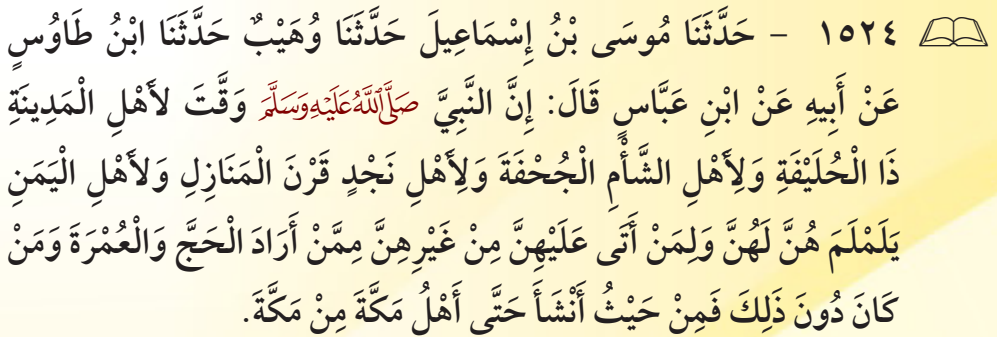 ١٥٢٤ - حَدَّثَنَا مُوسَى بْنُ إِسْمَاعِيلَ حَدَّثَنَا وُهَيْبٌ حَدَّثَنَا ابْنُ طَاوُسٍ
عَنْ أَبِيهِ عَنْ ابْنِ عَبَّاسٍ قَالَ: إِنَّ النَّبِيَّ صَلَّى اللَّهُ عَلَيْهِ وَسَلَّمَ وَقَّتَ لأَهْلِ الْمَدِينَةِ
ذَا الْحُلَيْفَةِ وَلِأَهْلِ الشَّأْمِ الْجُحْفَةَ وَلِأَهْلِ نَجْدٍ قَرْنَ الْمَنَازِلِ وَلأَهْلِ الْيَمَنِ
يَلَمْلَمَ هُنَّ لَهُنَّ وَلِمَنْ أَتَى عَلَيْهِنَّ مِنْ غَيْرِهِنَّ مِمَّنْ أَرَادَ الْحَجَّ وَالْعُمْرَةَ وَمَنْ
كَانَ دُونَ ذَلِكَ فَمِنْ حَيْثُ أَنْشَأَ حَتَّى أَهْلُ مَكَّةَ مِنْ مَكَّةَ.